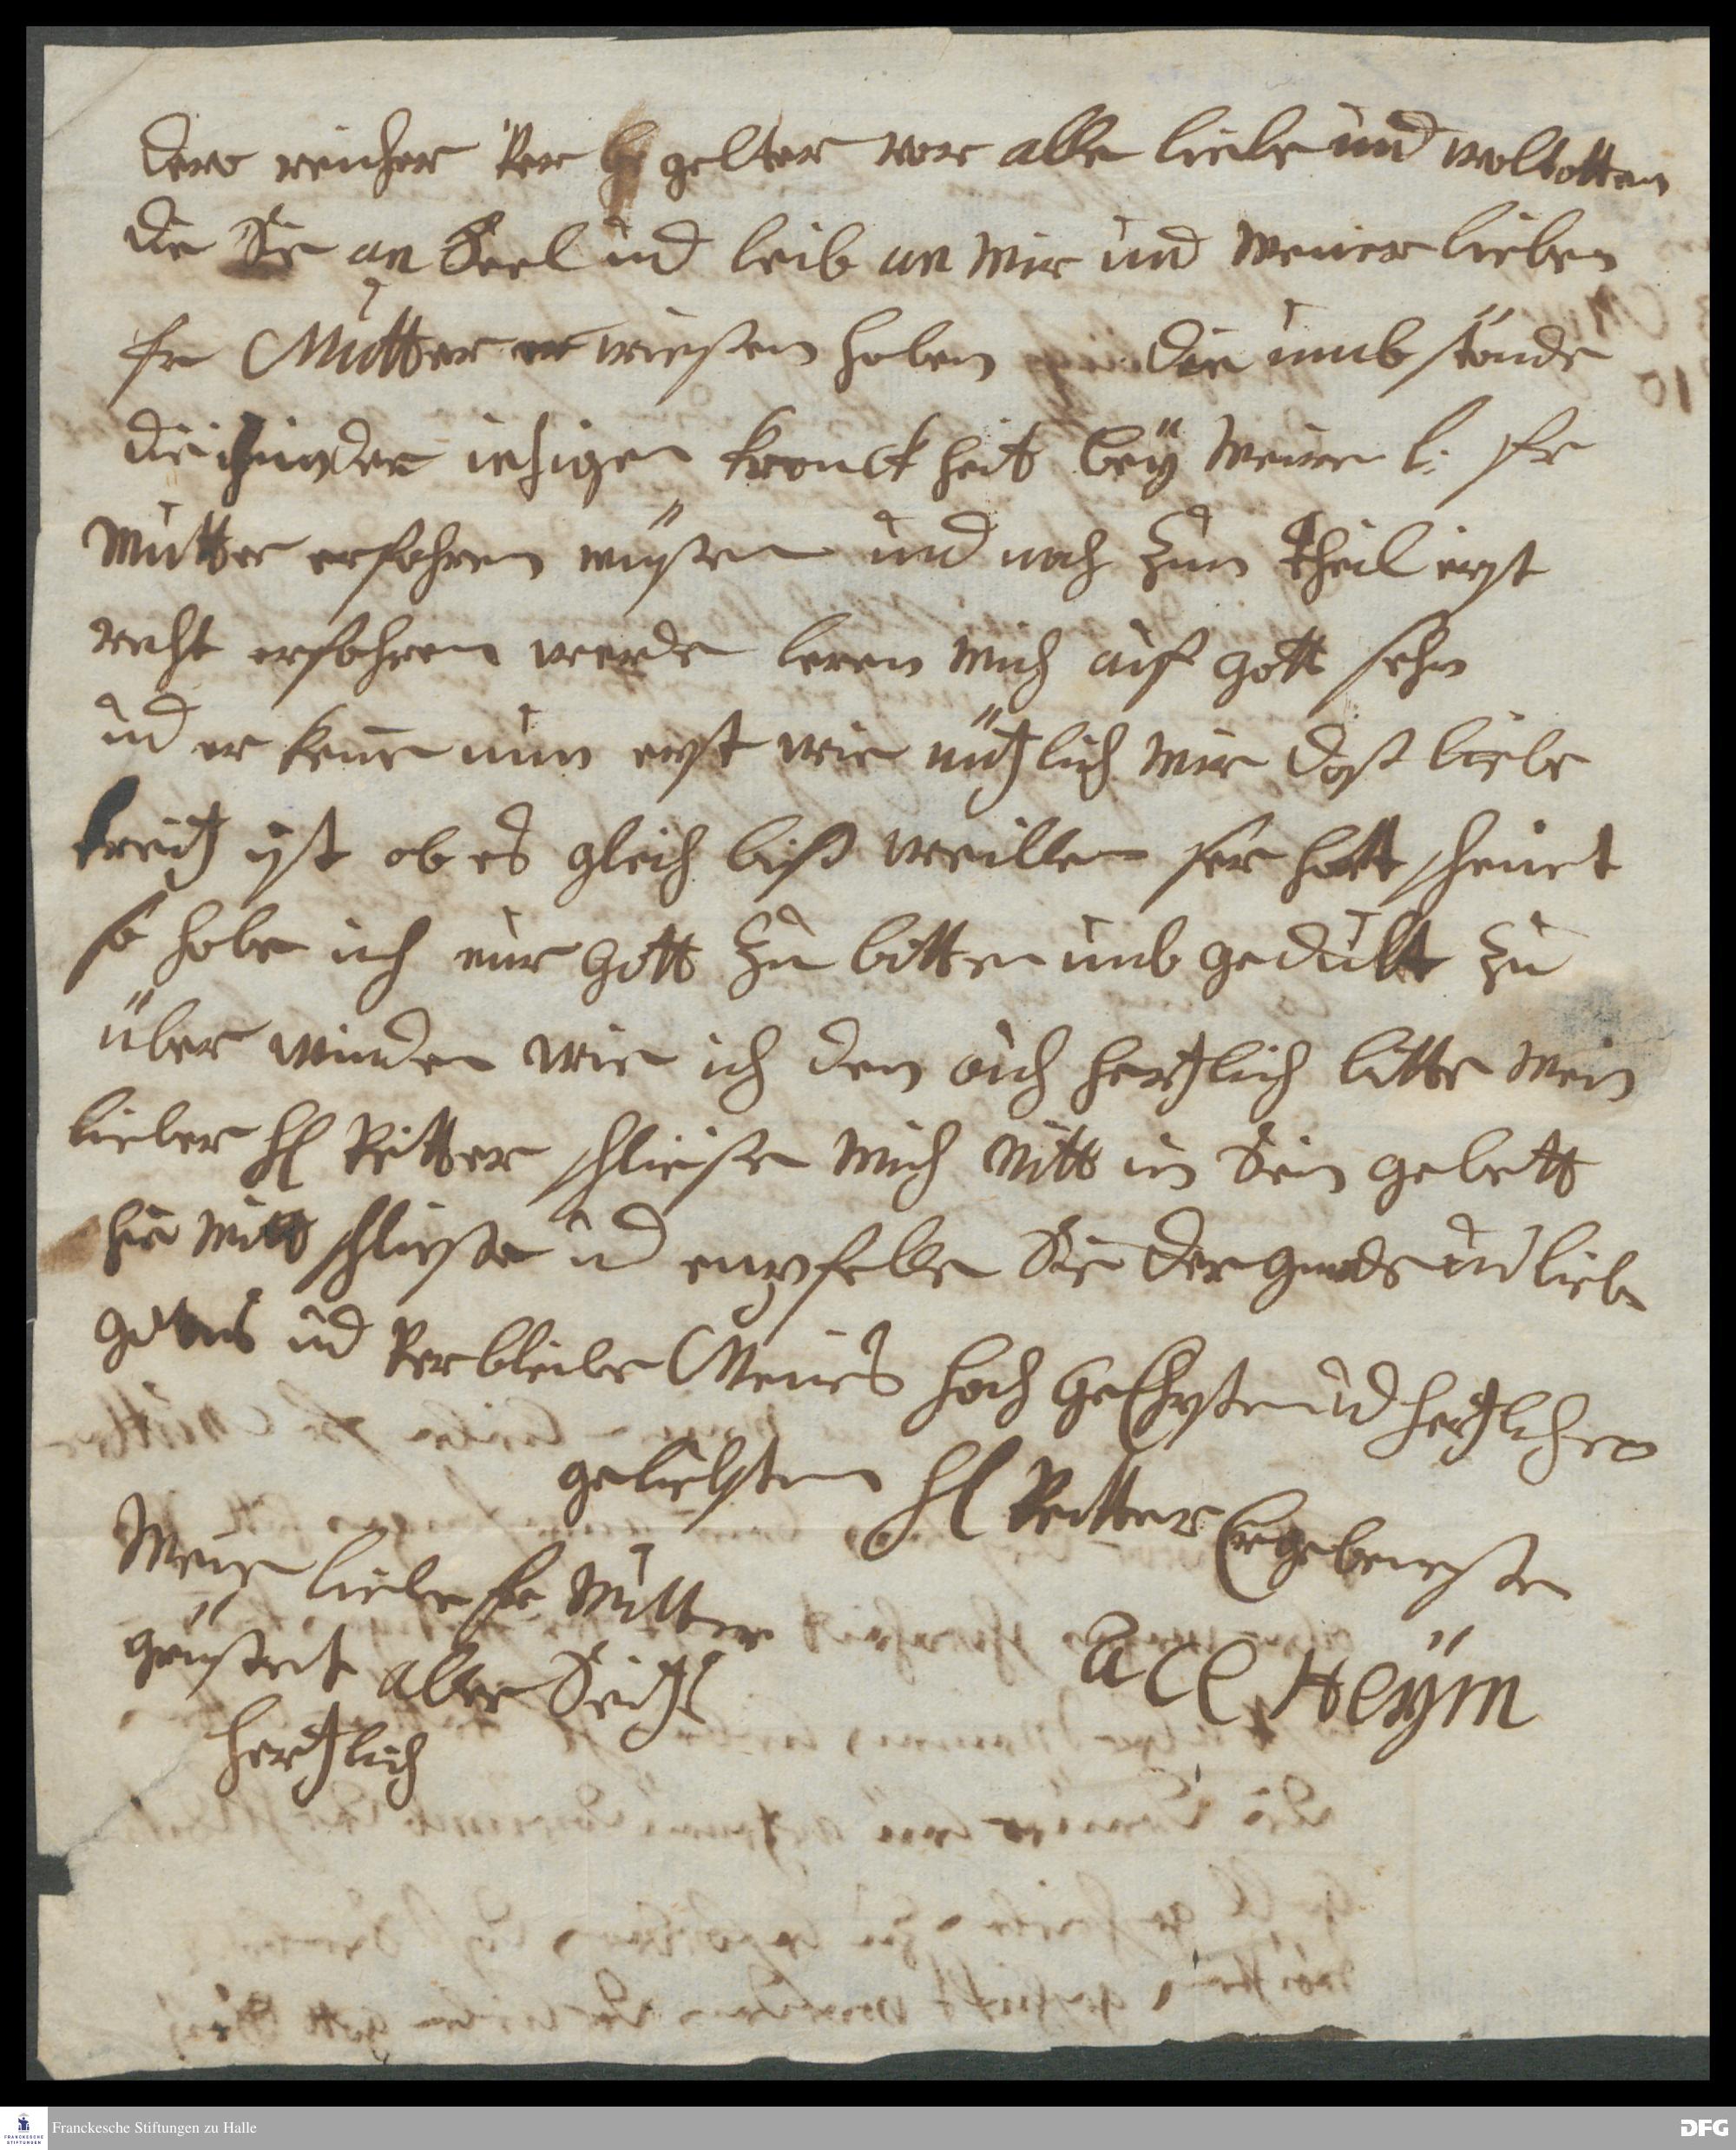 dero reicher Ver gelter vor alle liebe und woltatten
die Sie an Seel und leib an mir und meiner lieben
fr Mutter er wiesen haben die umb stände
die in der iesigen kranck heit beÿ meiner l: fr
mutter erfahren müssen und noch zum theil erst
recht erfahren werde leren mich auf gott sehn
und er kene nun erst wie nützlich mir dass liebe
kreutz ist ob es gleich biss weillen ser hatt scheinet
so habe ich nur gott zu bitten umb gedult zu
über winden wie ich den auch hertzlich bitte mein
lieber H Ritter schliesse mich mitt in Sein gebett
hie mitt schliesse und empfelle Sie der gnade und liebe
gottes und Verbleibe Meines hoch geEhrsten und hertzlichen
geliebsten H Ritter Ergebenste
a C C Heÿm
Meine liebe fr Mutter
grüsset aller Seitz
hertzlich
Franckesche Stiftungen zu Halle
DFG